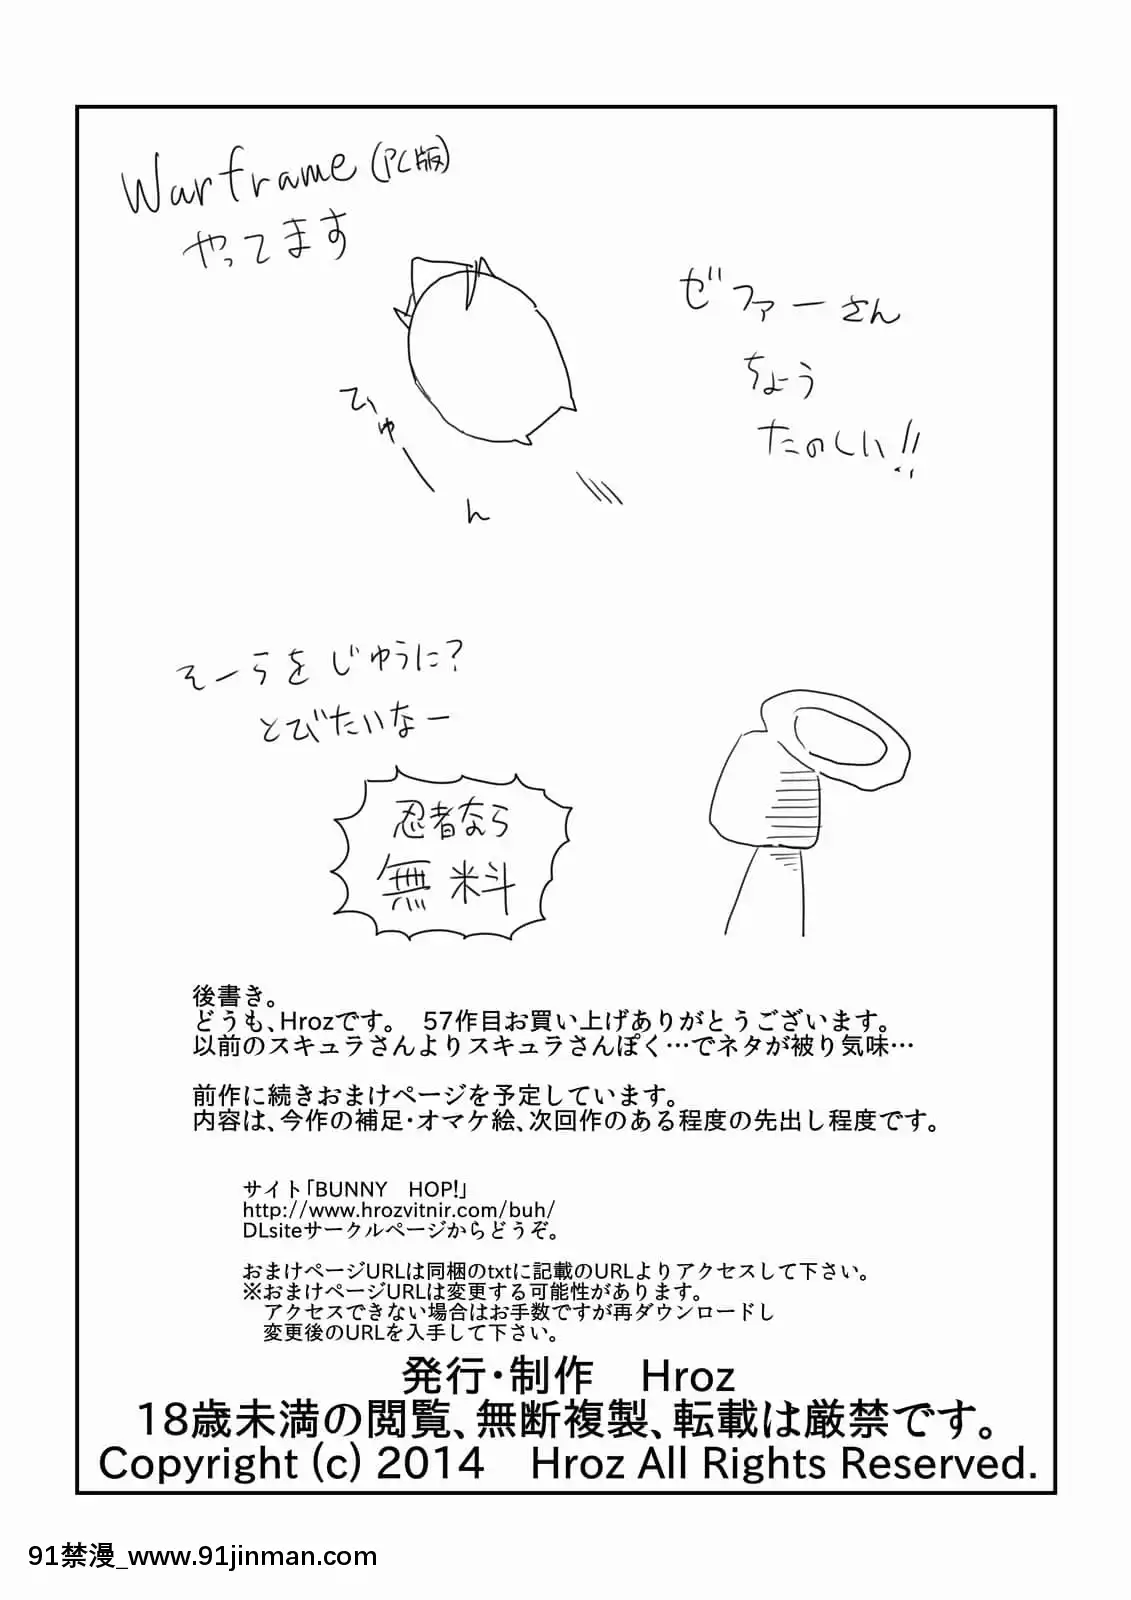 Warframe(PC版)
やってます
ゼファーさん
ちょう
たのしい!!
ひゅーん
そーらをじゅうに?
とびたいなー
忍者なら
無料
後書き。
どうも、Hrozです。　57作目お買い上げありがとうございます。
以前のスキュラさんよりスキュラさんぽく…でネタが被り気味…
前作に続きおまけページを予定しています。
内容は、今作の補足・オマケ絵、次回作のある程度の先出し程度です。
サイト「BUNNY　HOP!」
http://www.hrozvitnir.com/buh/
DLsiteサークルページからどうぞ。
おまけページURLは同梱のtxtに記載のURLよりアクセスして下さい。
※おまけページURLは変更する可能性があります。
アクセスできない場合はお手数ですが再ダウンロードし
変更後のURLを入手して下さい。
発行・制作　Hroz
18歳未満の閲覧、無断複製、転載は厳禁です。
Copyright (c) 2014　Hroz All Rights Reserved.
91禁漫_www.91jinman.com